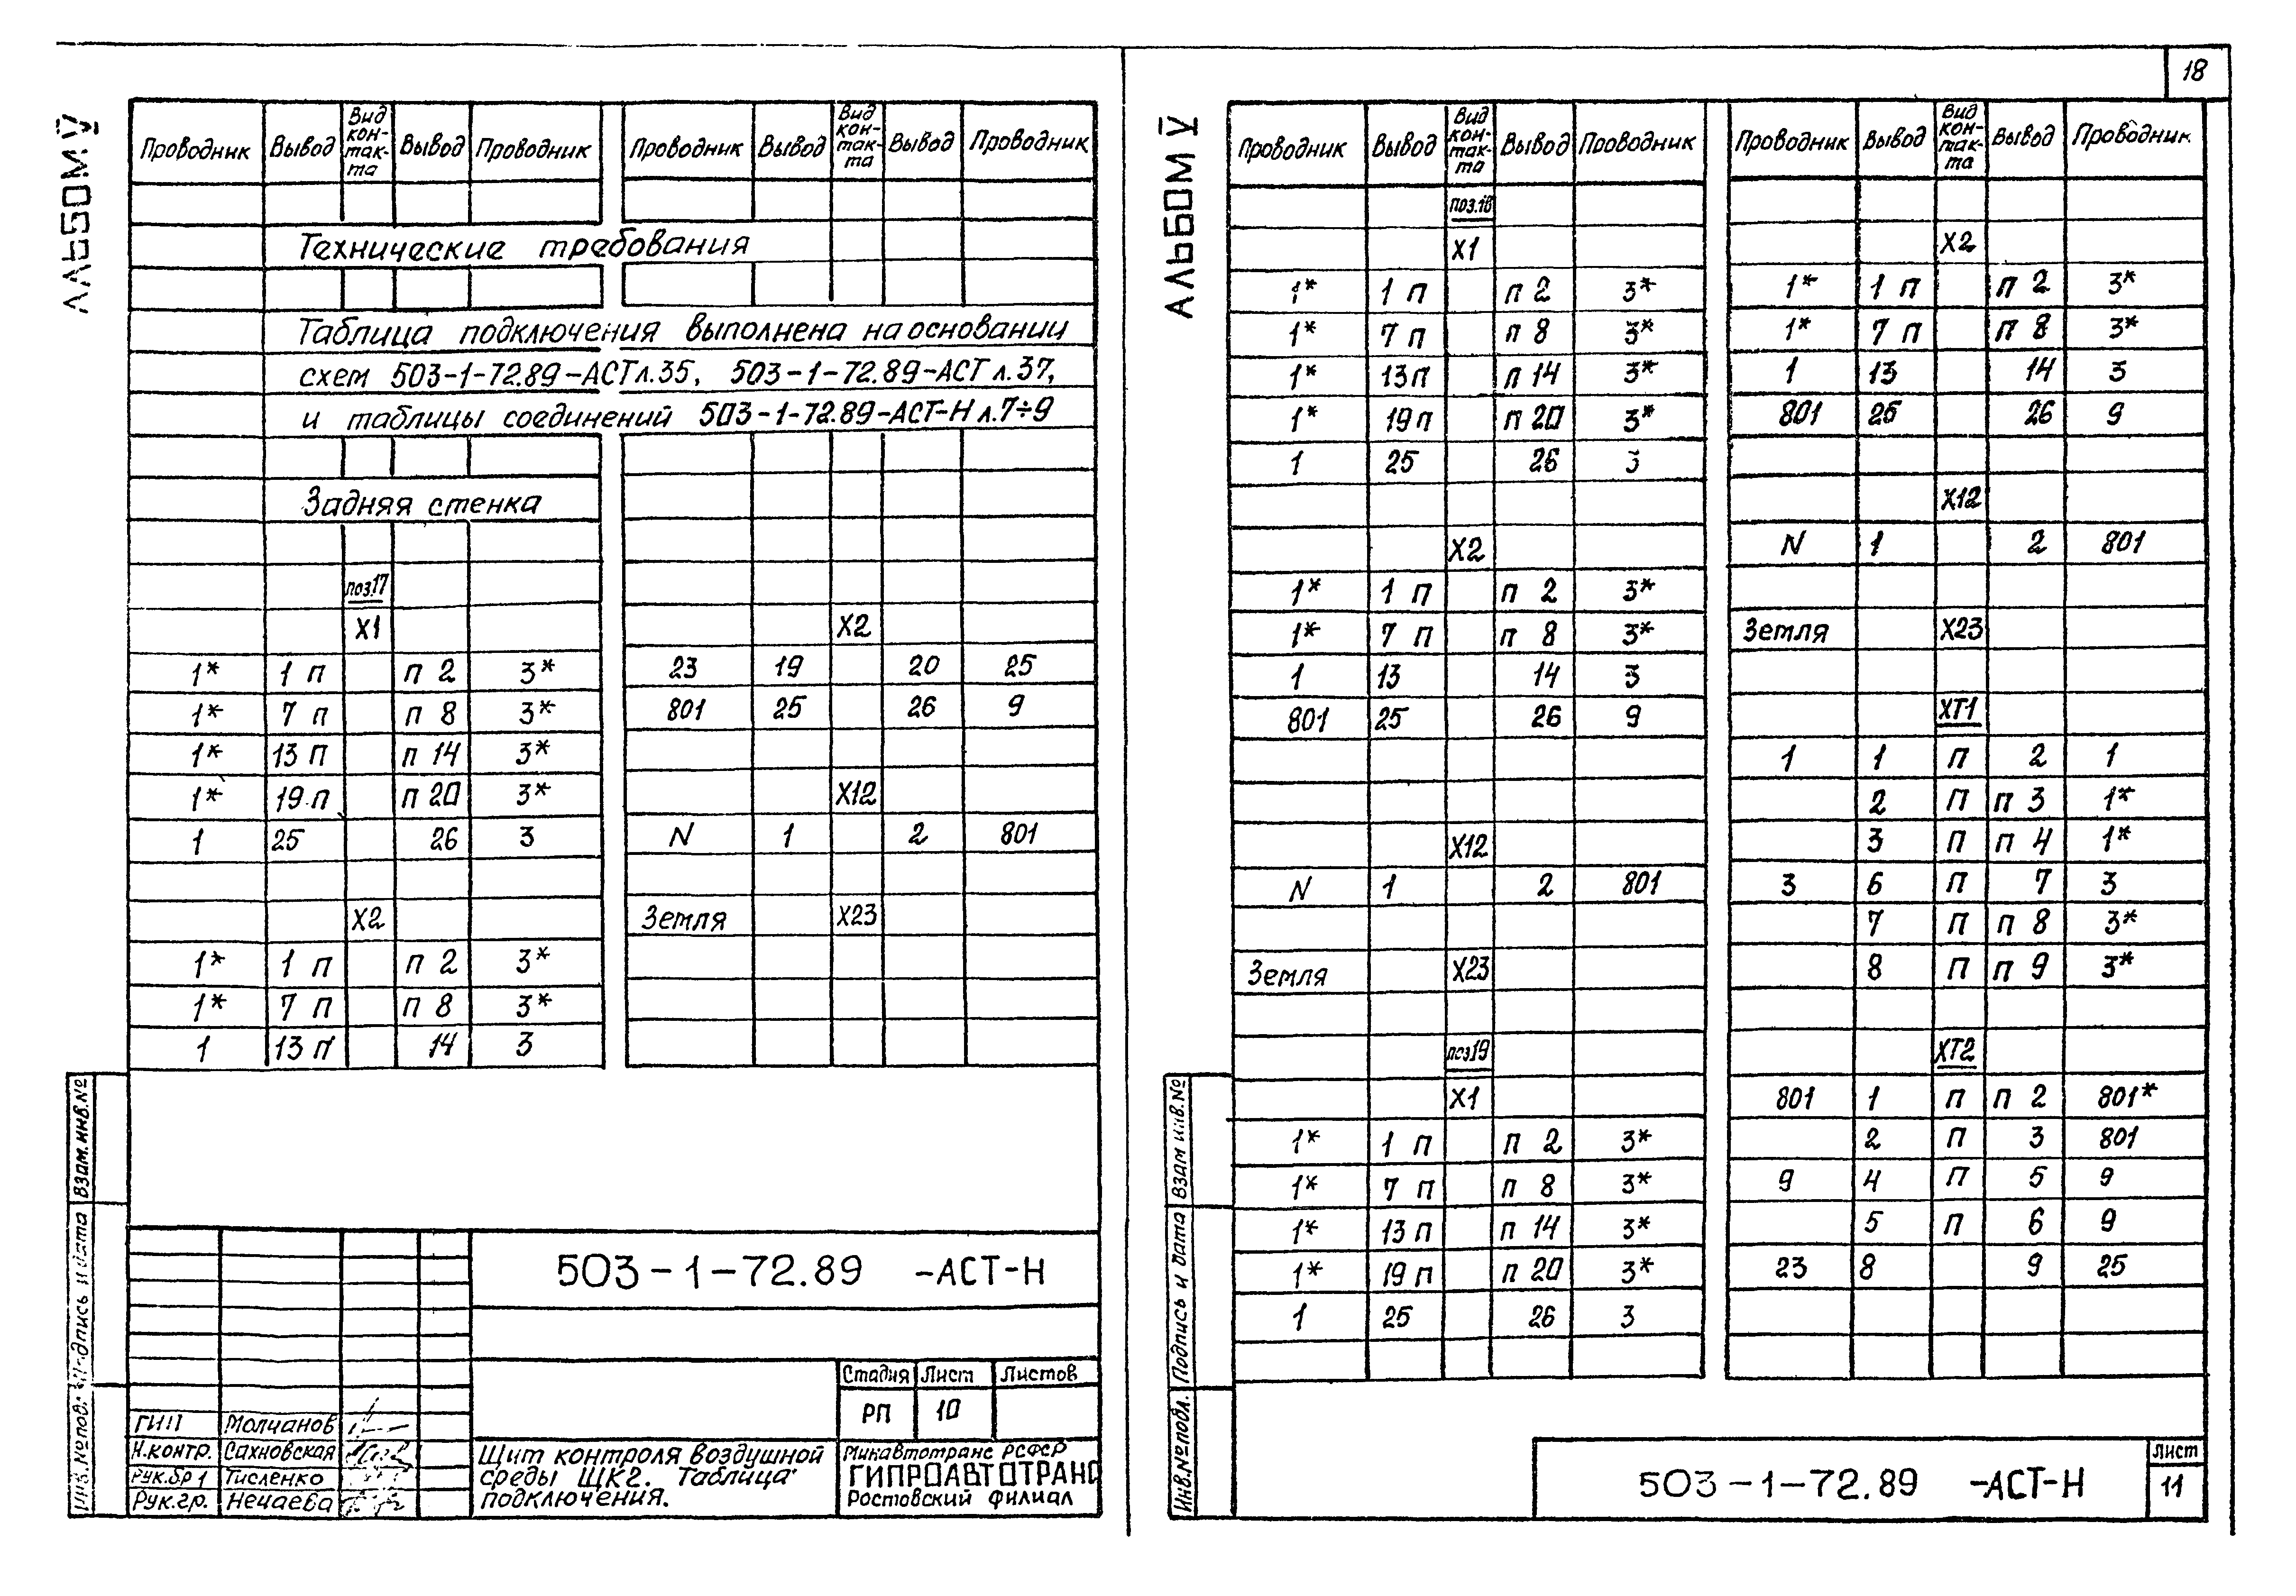 18
АЛЬБОМ V
Проводник Вывод Вид контакта Вывод Проводник Проводник Вывод Вид контакта Вывод Проводник
Технические требования
Таблица подключения выполнена на основании
схем 503-1-72.89-АСТ л.35, 503-1-72.89-АСТ л.37,
и таблицы соединений 503-1-72.89-АСТ-Н л.7÷9
Задняя стенка
поз.17
X1
1* 1 п п 2 3*
1* 7 п п 8 3*
1* 13 п п 14 3*
1* 19 п п 20 3*
1 25 26 3
X2
1* 1 п п 2 3*
1* 7 п п 8 3*
1 13 п 14 3
X2
23 19 20 25
801 25 26 9
X12
N 1 2 801
Земля X23
Взам. инв.№
Подпись и дата
Инв.№ подл.
503-1-72.89 -АСТ-Н
Стадия Лист Листов
РП 10
ГИП Молчанов
Н.контр. Сахновская
Рук.бр 1 Тисленко
Рук.гр. Нечаева
Щит контроля воздушной
среды ЩК2. Таблица
подключения.
Минавтотранс РСФСР
ГИПРОАВТОТРАНС
Ростовский филиал
АЛЬБОМ V
Проводник Вывод Вид контакта Вывод Проводник Проводник Вывод Вид контакта Вывод Проводник
поз.18
X1
1* 1 п п 2 3*
1* 7 п п 8 3*
1* 13 п п 14 3*
1* 19 п п 20 3*
1 25 26 3
X2
1* 1 п п 2 3*
1* 7 п п 8 3*
1 13 14 3
801 25 26 9
X12
N 1 2 801
Земля X23
поз 19
X1
1* 1 п п 2 3*
1* 7 п п 8 3*
1* 13 п п 14 3*
1* 19 п п 20 3*
1 25 26 3
X2
1* 1 п п 2 3*
1* 7 п п 8 3*
1 13 14 3
801 25 26 9
X12
N 1 2 801
Земля X23
XT1
1 1 п 2 1
2 п п 3 1*
3 п п 4 1*
3 6 п 7 3
7 п п 8 3*
8 п п 9 3*
XT2
801 1 п п 2 801*
2 п 3 801
9 4 п 5 9
5 п 6 9
23 8 9 25
Взам инв.№
Подпись и дата
Инв.№ подл.
503-1-72.89 -АСТ-Н
Лист
11